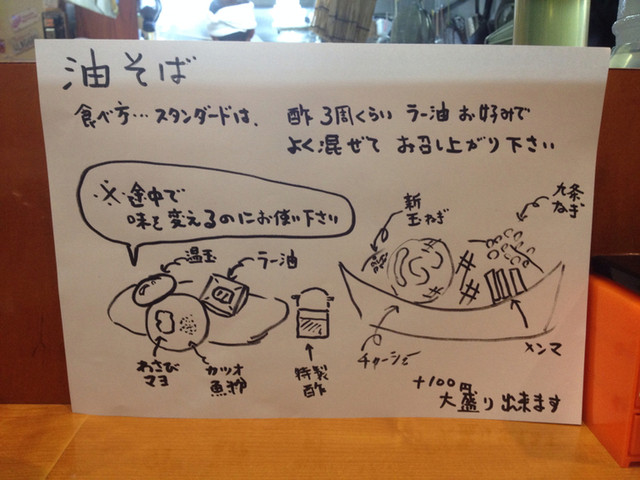 油そば
食べ方…スタンダードは、 酢3周くらい ラー油お好みで
よく混ぜて お召し上がり下さい
※途中で
味を変えるのにお使い下さい
温玉
ラー油
わさび
マヨ
カツオ
魚粉
特製
酢
新
玉ねぎ
九条
ねぎ
チャーシュー
メンマ
+100円
大盛り出来ます